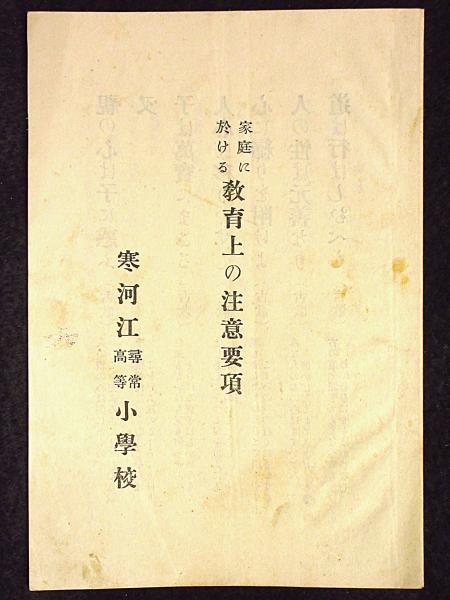 家庭に於ける教育上の注意要項
寒河江尋常高等小學校